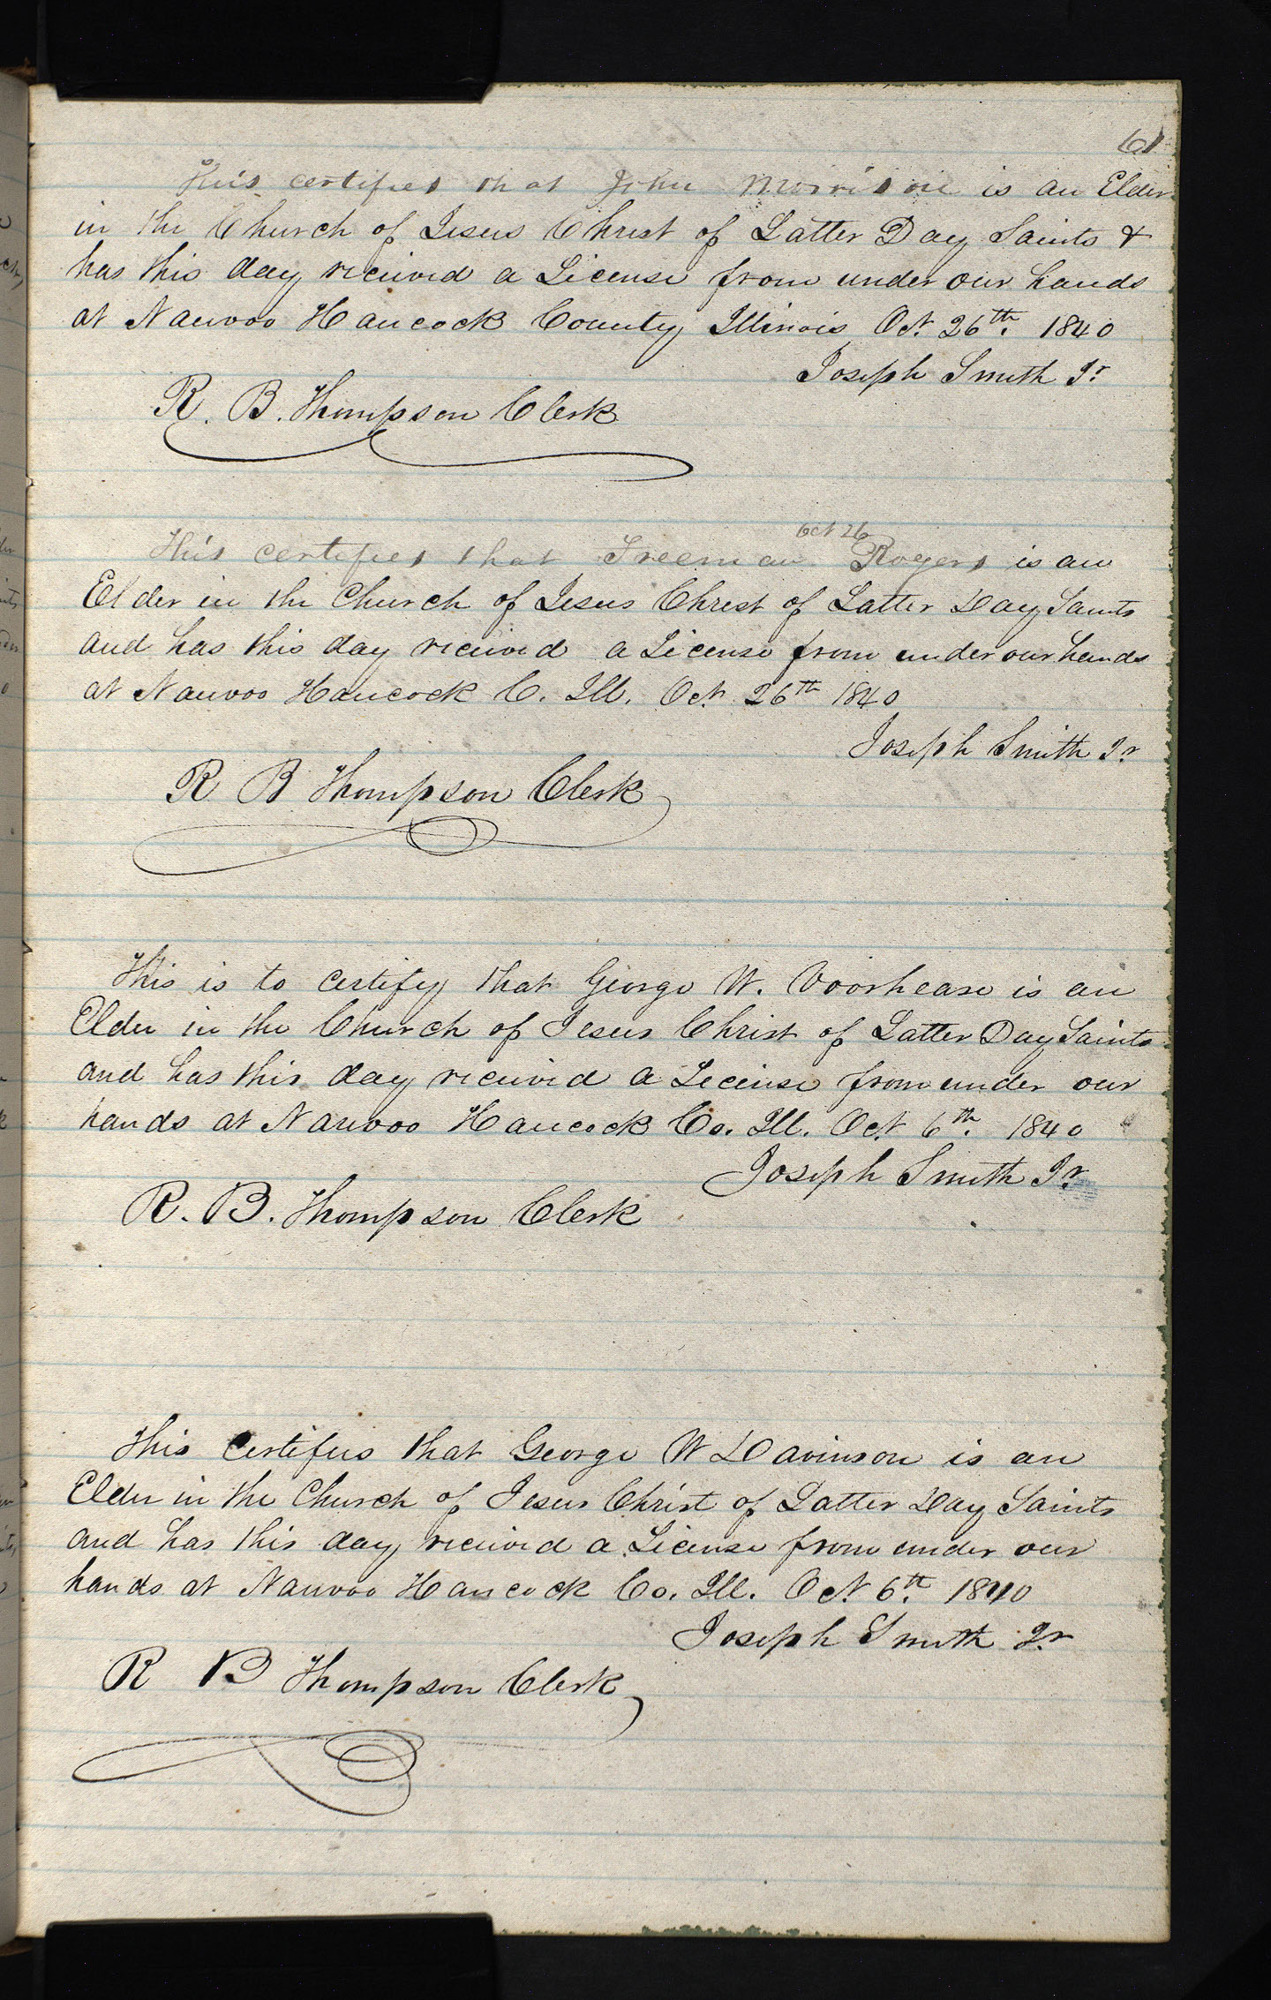 61
This certifies that John Morrison is an Elder
in the Church of Jesus Christ of Latter Day Saints &
has this day received a License from under our hands
at Nauvoo Hancock County Illinois Oct. 26th. 1840
Joseph Smith Jr.
R. B. Thompson Clerk
Oct 26
This certifies that Freeman Rogers is an
Elder in the Church of Jesus Christ of Latter Day Saints
and has this day received a License from under our hands
at Nauvoo Hancock C. Ill. Oct. 26th 1840
Joseph Smith Jr
R B Thompson Clerk
This is to certify that George W. Voorhease is an
Elder in the Church of Jesus Christ of Latter Day Saints
and has this day received a License from under our
hands at Nauvoo Hancock Co. Ill. Oct. 6th. 1840
Joseph Smith Jr
R. B. Thompson Clerk
This certifies that George W Davinson is an
Elder in the Church of Jesus Christ of Latter Day Saints
and has this day received a License from under our
hands at Nauvoo Hancock Co. Ill. Oct. 6th. 1840
Joseph Smith Jr
R B Thompson Clerk